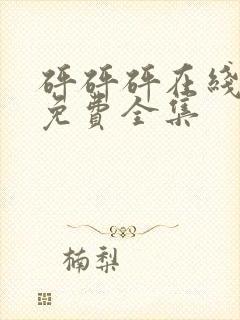 砰砰砰在线
免费全集
楠梨